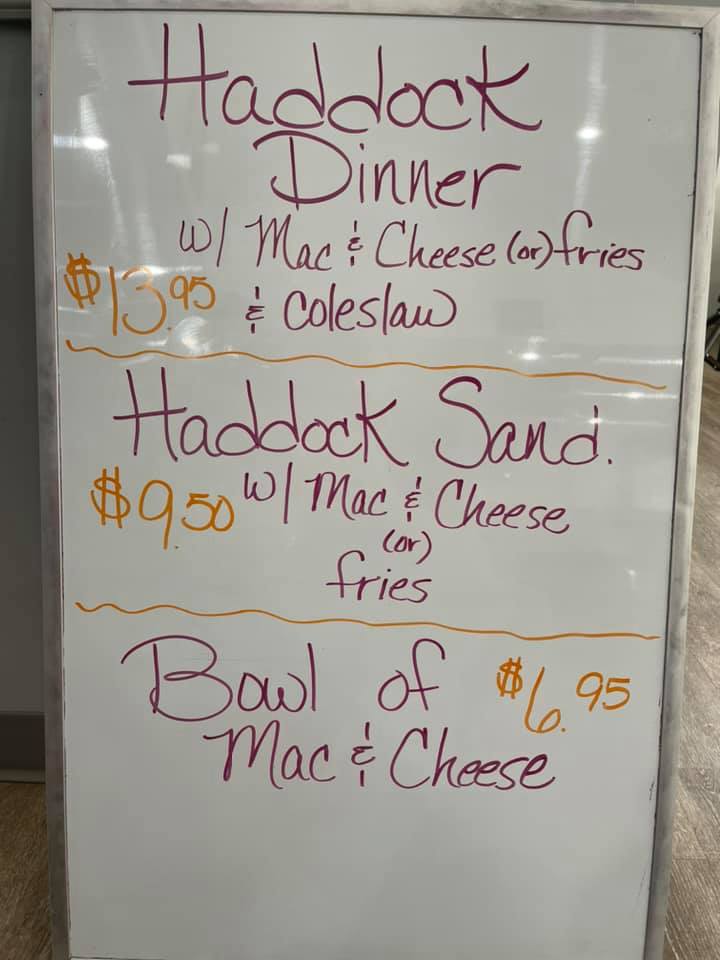 Haddock
Dinner
w/ Mac & Cheese (or) fries
$13.95 & Coleslaw
Haddock Sand.
$9.50 w/ Mac & Cheese
(or)
fries
Bowl of $6.95
Mac & Cheese